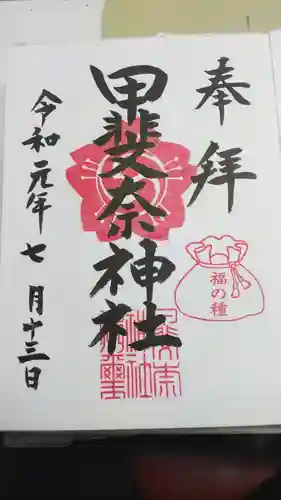 奉拝
福の種
甲斐奈神社
令和元年七月十三日